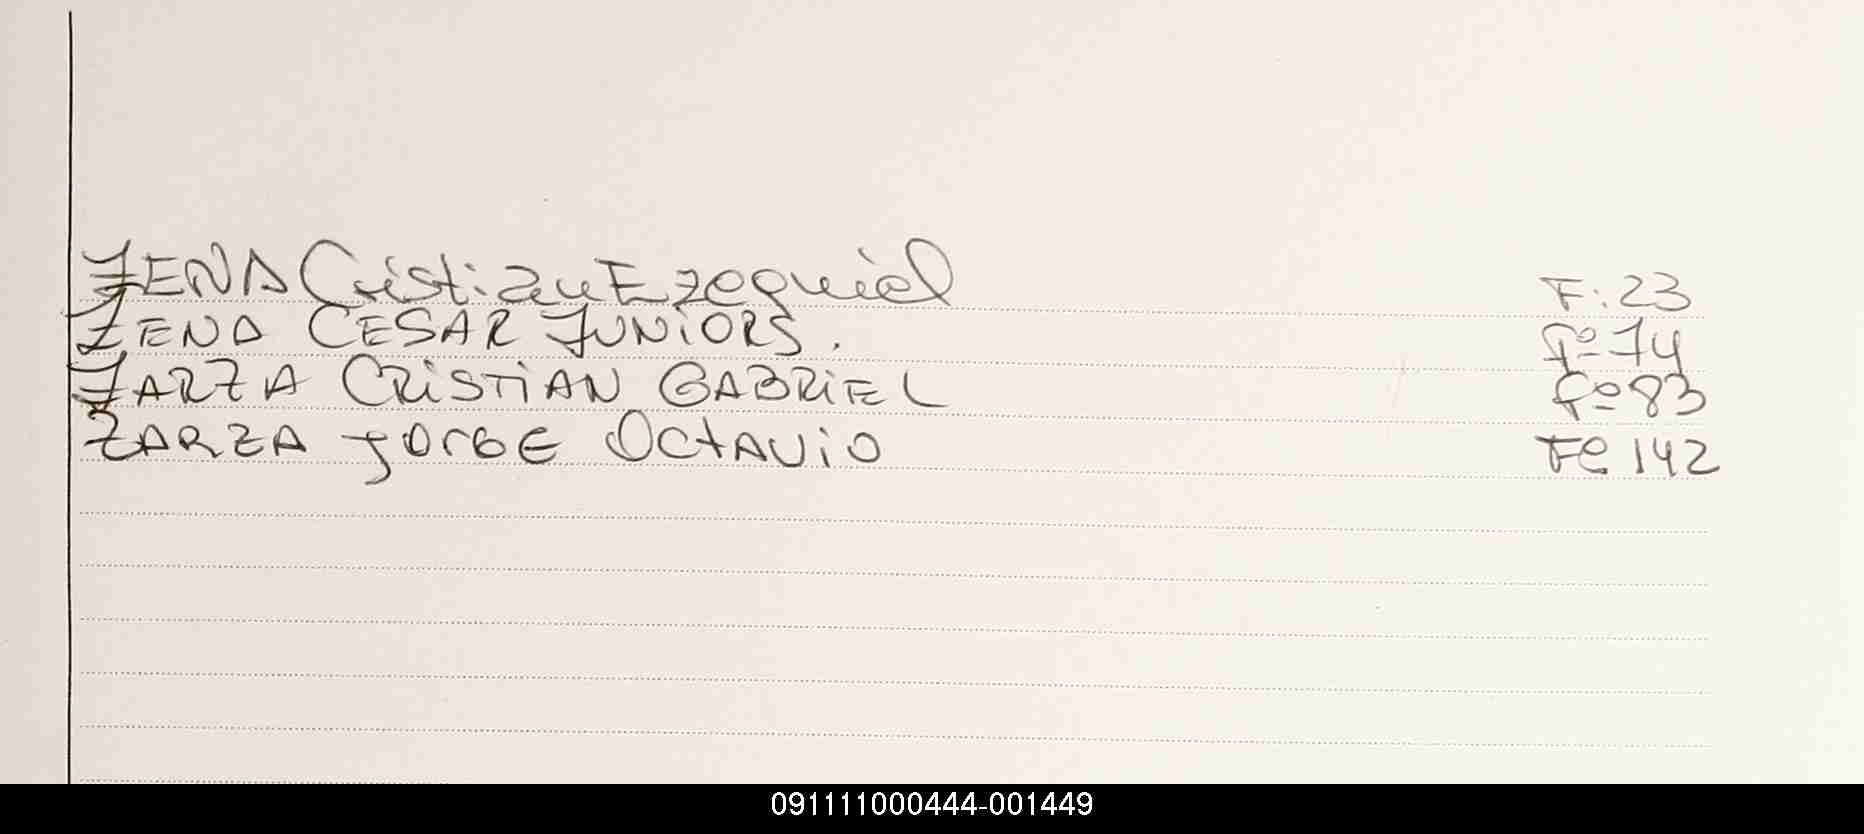 ZENA Cristian Ezequiel F: 23
ZENA CESAR JUNIORS. Fº 74
ZARZA CRISTIAN GABRIEL Fº 83
ZARZA JORGE OCTAVIO Fº 142
091111000444-001449